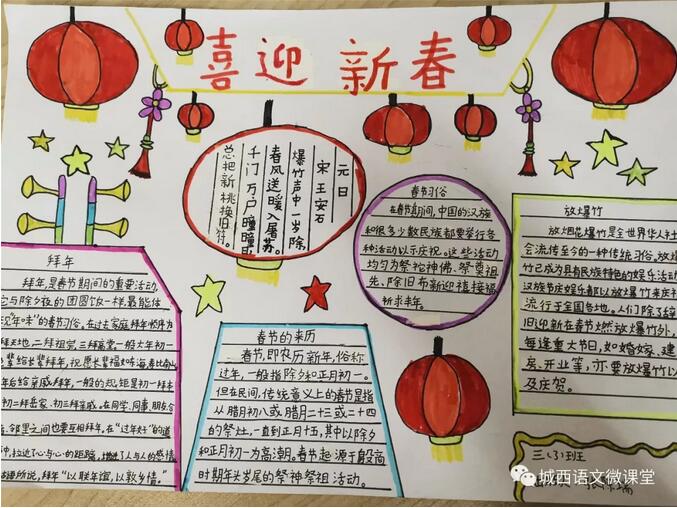 喜迎新春
元日
宋 王安石
爆竹声中一岁除
春风送暖入屠苏。
千门万户瞳瞳日
总把新桃换旧符。
春节习俗
在春节期间,中国的汉族
和很多少数民族都要举行各
种活动以示庆祝。这些活动
均匀为祭祀神佛、祭奠祖
先、除旧布新迎禧接福
祈求丰年。
放爆竹
放烟花爆竹是全世界华人社
会流传至今的一种传统习俗。放
竹已成为具有民族特色的娱乐活动
汉族节庆娱乐都以放爆竹来庆
流行于全国各地。人们除了辞
旧迎新在春节燃放爆竹外,
每逢重大节日,如婚嫁、建
房、开业等,亦要放爆竹以
及庆贺。
拜年
拜年,是春节期间的重要活动,
它与除夕夜的团圆饭一样最能体
现"年味"的春节习俗。在过去家庭拜年顺序为
拜天地、二拜祖宗三拜高堂一般大年初一
辈给长辈拜年,祝愿长辈福如海,寿比南山
年后给亲戚拜年,一般的规矩是初一拜本
初二拜岳家、初三拜亲戚。在同学、同事、朋友
邻里之间也要互相拜年。在"过年好"的道
中,拉近了心与心的距离,增进了人与人的感情
所说,拜年"以联年谊,以敦乡情。"
春节的来历
春节,即农历新年,俗称
过年,一般指除夕和正月初一。
但在民间,传统意义上的春节是指
从腊月初八或腊月二十三或二十四
的祭灶,一直到正月十五,其中以除夕
和正月初一为高潮。春节起源于殷商
时期年头岁尾的祭神祭祖活动。
班
城西语文微课堂